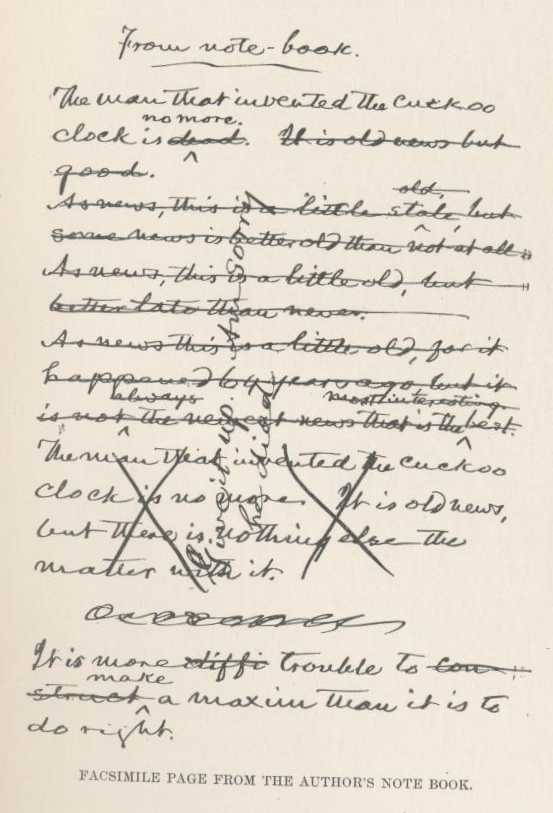 From note-book.
The man that invented the cuckoo
no more.
clock is dead. It is old news but
good.
old,
As news, this is a little stale, but
some news is better old than not at all.
As news, this is a little old, but
better late than never.
As news this is a little old, for it
happened 64 years ago, but it
always most interesting
is not the newest news that is the best.
The man that invented the cuckoo
clock is no more. It is old news,
but there is nothing else the
matter with it.
Give it up. I'm sorry
he died
It is more diffi trouble to con-
make
struct a maxim than it is to
do right.
FACSIMILE PAGE FROM THE AUTHOR'S NOTE BOOK.